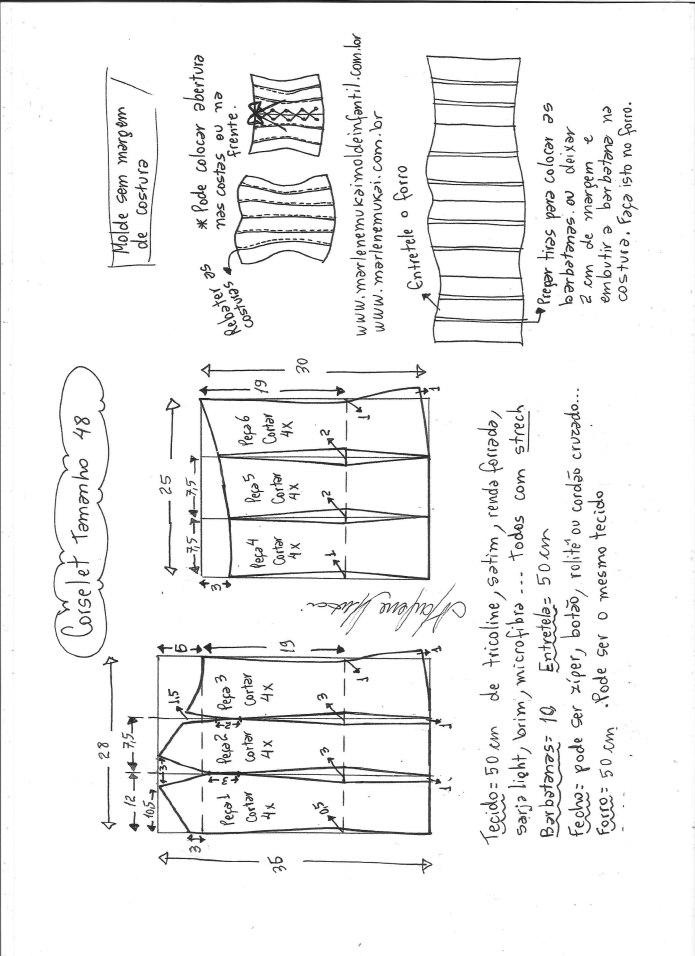 Corselet Tamanho 48
Molde sem margem
de costura
28
12
7,5
10,5
3
1,5
5
3
35
19
Peça 1
Cortar
4x
Peça 2
Cortar
4x
Peça 3
Cortar
4x
3
2
0,5
3
3
1
1
1
1
25
7,5
7,5
3
19
30
Peça 4
Cortar
4x
Peça 5
Cortar
4x
Peça 6
Cortar
4x
1
2
2
1
1
Marlene Mukai
Rebater as
costuras
* Pode colocar abertura
nas costas ou na
frente.
www.marlenemukaimoldeinfantil.com.br
www.marlenemukai.com.br
Entretele o forro
Pregar tiras para colocar as
barbatanas ou deixar
2 cm de margem e
embutir a barbatana na
costura. Faça isto no forro.
Tecido = 50 cm de tricoline, satim, renda forrada,
sarja light, brim, microfibra... Todos com strech
Entretela = 50 cm
Fecho = pode ser zíper, botão, rolitê ou cordão cruzado...
Forro = 50 cm. Pode ser o mesmo tecido